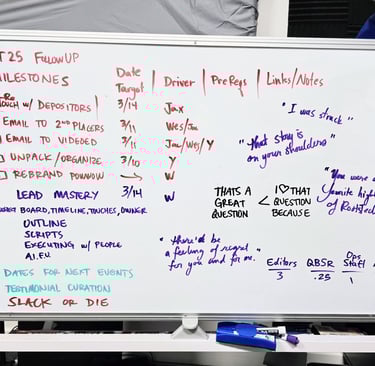 T25 FOLLOWUP
MILESTONES
Date Target | Driver | PreReqs | Links/Notes
TOUCH W/ DEPOSITORS 3/14 Jax
EMAIL TO 2ND PLACERS 3/11 Wes/Jac
EMAIL TO VIDEOED 3/11 Jac/Wes/Y
UNPACK/ORGANIZE 3/10 Y
REBRAND POWWOW → W
LEAD MASTERY 3/14 W
BOARD, TIMELINE, TOUCHES, OWNER
OUTLINE
SCRIPTS
EXECUTING W/ PEOPLE
DATES FOR NEXT EVENTS
TESTIMONIAL CURATION
SLACK OR DIE
"I was struck"
"that stays
on your shoulders"
"You were
favorite
of
THATS A
GREAT
QUESTION
<
I ♡ THAT
QUESTION
BECAUSE
"there'd be
a feeling of regret
for you and for me."
Editors QBSR Ops Staff
3 .25 1